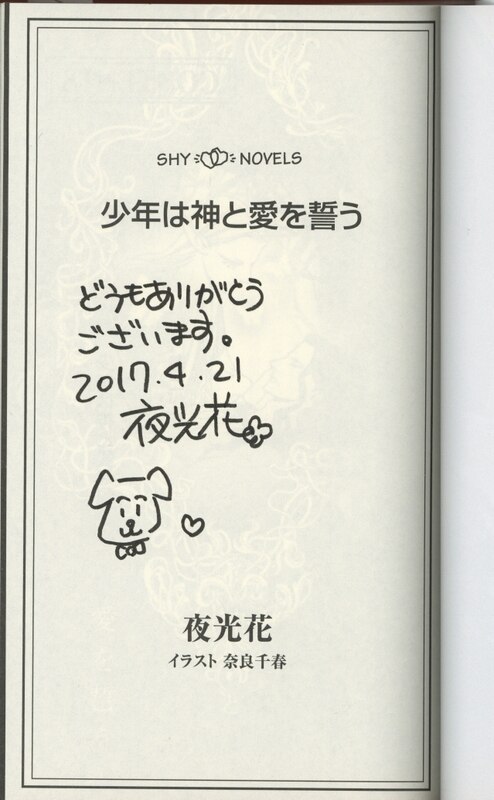 SHY NOVELS
少年は神と愛を誓う
どうもありがとう
ございます。
2017.4.21
夜光花
夜光花
イラスト 奈良千春